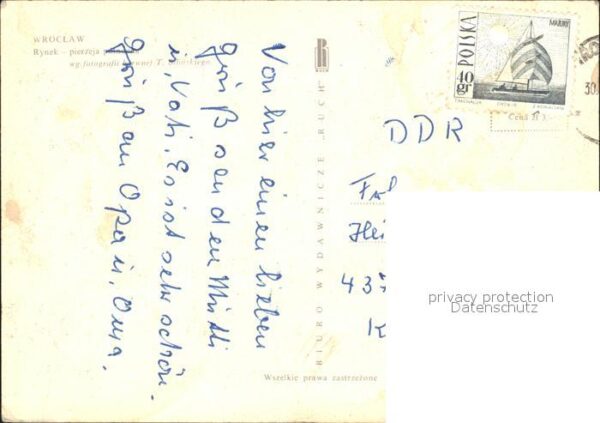 WROCŁAW
Rynek — pierzeja
wg fotografii
Von hier einen lieben
Gruß senden Mutti
u, Vati. Es ist sehr schön.
Gruß an Opa u, Oma.
BIURO WYDAWNICZE „RUCH"
RUCH
Wszelkie prawa zastrzeżone
POLSKA
40 gr
Cena zł
30
DDR
Frl
Hei
437
K
privacy protection
Datenschutz